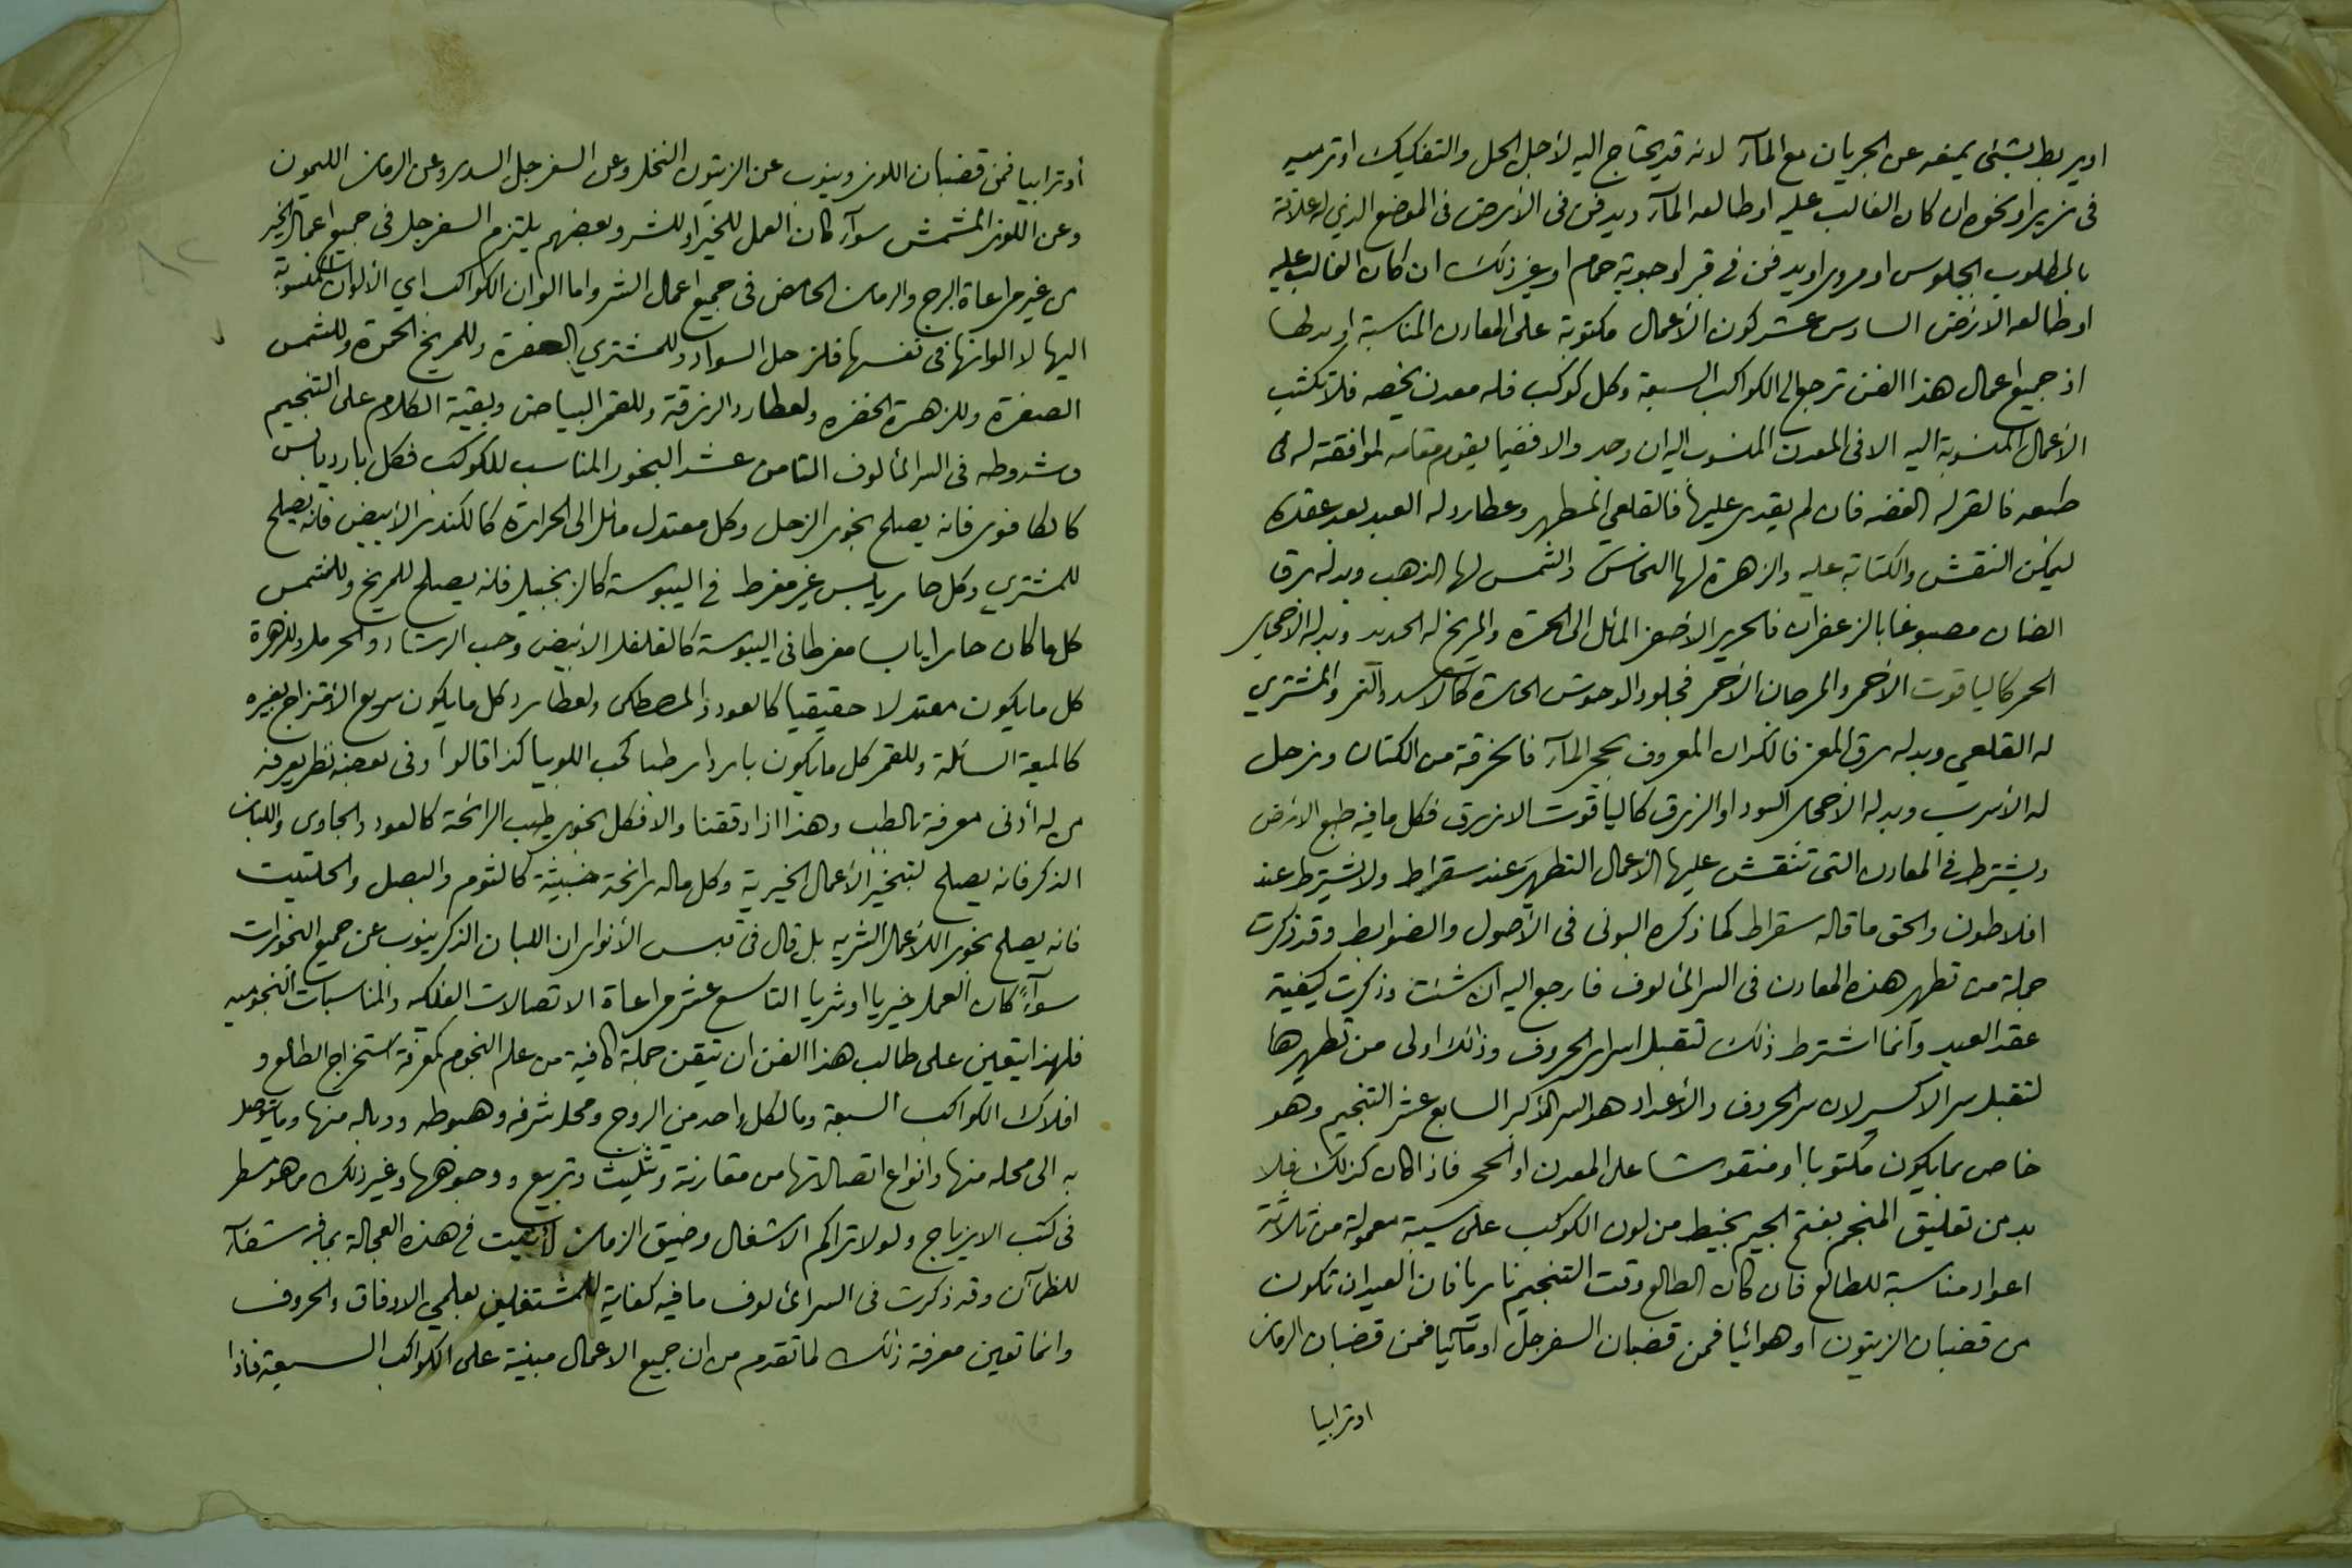 او يربط بشئ يمنعه عن الجريان مع المآء لانه قد يحتاج اليه لأجل الحل والتفكيك او ترميه
فى بئر او نحوه ان كان الغالب عليه او طالعه المآء ويدفن فى الأرض فى الموضع الذى له علاقة
بالمطلوب لجلوس او مرور او يدفن فى قبر او جوبة حمام او غير ذلك ان كان الغالب عليه
او طالعه الارض السادس عشر كون الأعمال مكتوبة على المعادن المناسبة او بدلها
اذ جميع اعمال هذا الفن ترجع الى الكواكب السبعة وكل كوكب فله معدن يخصه فلا تكتب
الأعمال المنسوبة اليه الا فى المعدن المنسوب اليه ان وجد والا ففيما يقوم مقامه لموافقته له فى
طبعه فالقمر له الفضه فان لم يقدر عليها فالقلعي المطهر وعطارد له العبد بعد عقده
ليمكن النقش والكتابة عليه والزهرة لها النحاس والشمس لها الذهب وبدله رق
الضان مصبوغا بالزعفران فالحرير الأصفر المائل الى الحمرة والمريخ له الحديد وبدله الاحجار
الحمر كالياقوت الأحمر والمرجان الأحمر فجلود الوحوش الحارة كالاسد والنمر والمشترى
له القلعي وبدله رق المعز فالكدان المعروف بحجر المآء فالخرقة من الكتان وزحل
له الأسرب وبدله الاحجار السود او الزرق كالياقوت الازرق فكل ما فيه طبع الارض
ويشترط فى المعادن التى تنقش عليها الأعمال التطهير عند سقراط ولا يشترط عند
افلاطون والحق ما قاله سقراط كما ذكره البونى فى الأصول والضوابط وقد ذكرت
جملة من تطهير هذه المعادن فى السر المألوف فارجع اليه ان شئت وذكرت كيفية
عقد العبد وانما اشترط ذلك لتقبل اسرار الحروف وذلك اولى من تطهيرها
لتقبل سر الاكسير لان سر الحروف والأعداد هو السر الأكبر السابع عشر التنجيم وهو
خاص بما يكون مكتوبا او منقوشا على المعدن او الحجر فاذا كان كذلك فلا
بد من تعليق المنجم بفتح الجيم بخيط من لون الكوكب على سيبة معمولة من ثلاثة
اعواد مناسبة للطالع فان كان الطالع وقت التنجيم ناريا فان العيدان تكون
من قضبان الزيتون او هوائيا فمن قضبان السفرجل او مآئيا فمن قضبان الرمان
او ترابيا
أو ترابيا فمن قضبان اللوز وينوب عن الزيتون النخل وعن السفرجل السدر وعن الرمان الليمون
وعن اللوز المشمش سوآء كان العمل للخير او للشر وبعضهم يلتزم السفرجل فى جميع اعمال الخير
من غير مراعاة البرج والرمان الحامض فى جميع اعمال الشر واما الوان الكواكب اي الألوان المنسوبة
اليها لا الوانها فى نفسها فلزحل السواد وللمشتري الصفرة وللمريخ الحمرة وللشمس
الصفرة وللزهرة الخضره ولعطارد الزرقة وللقمر البياض وبقية الكلام على التنجيم
وشروطه فى السر المألوف الثامن عشر البخور المناسب للكوكب فكل بارد يابس
كالكافور فانه يصلح بخور الزحل وكل معتدل مائل الى الحرارة كالكندر الأبيض فانه يصلح
للمشتري وكل حار يابس غير مفرط فى اليبوسة كالزنجبيل فانه يصلح للمريخ وللشمس
كل ما كان حارا يابسا مفرطا فى اليبوسة كالفلفل الابيض وحب الرشاد والحرمل وللزهرة
كل ما يكون معتدلا حقيقيا كالعود والمصطكى ولعطارد كل ما يكون سريع الأمتزاج بغيره
كالميعة السائلة وللقمر كل ما يكون باردا رطبا كحب اللوبيا كذا قالوا وفى بعضه نظر يعرفه
من له أدنى معرفة بالطب وهذا اذا دققنا والا فكل بخور طيب الرائحة كالعود والجاوى واللبان
الذكر فانه يصلح لتبخير الأعمال الخيرية وكل ماله رائحة خبيثة كالثوم والبصل والحلتيت
فانه يصلح بخورا للأعمال الشريه بل قال فى قبس الأنوار ان اللبان الذكر ينوب عن جميع البخورات
سوآء كان العمل خيريا او شريا التاسع عشر مراعاة الاتصالات الفلكيه والمناسبات النجوميه
فلهذا يتعين على طالب هذا الفن ان يتقن جملة كافية من علم النجوم كمعرفة استخراج الطالع و
افلاك الكواكب السبعة وما لكل واحد من البروج ومحل شرفه وهبوطه ووباله منها وما يتوصل
به الى محله منها وانواع اتصالاتها من مقارنة وتثليث وتربيع ووجوهها وغير ذلك مما هو مسطر
فى كتب الازياج ولولا تراكم الاشغال وضيق الزمان لأتيت فى هذه العجالة بما فيه شفآء
للظمآن وقد ذكرت فى السر المألوف ما فيه كفاية للمشتغلين بعلمي الاوفاق والحروف
وانما تعين معرفة ذلك لما تقدم من ان جميع الاعمال مبنية على الكواكب السبعة فاذا